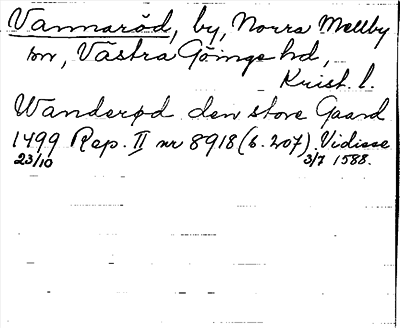 Vannaröd, by, Norra Mellby
sn, Västra Göinge hd,
Krist. l.
Wanderød den store Gaard
1499 Rep. II nr 8918 (6.207). Vidisse
23/10 3/7 1588.